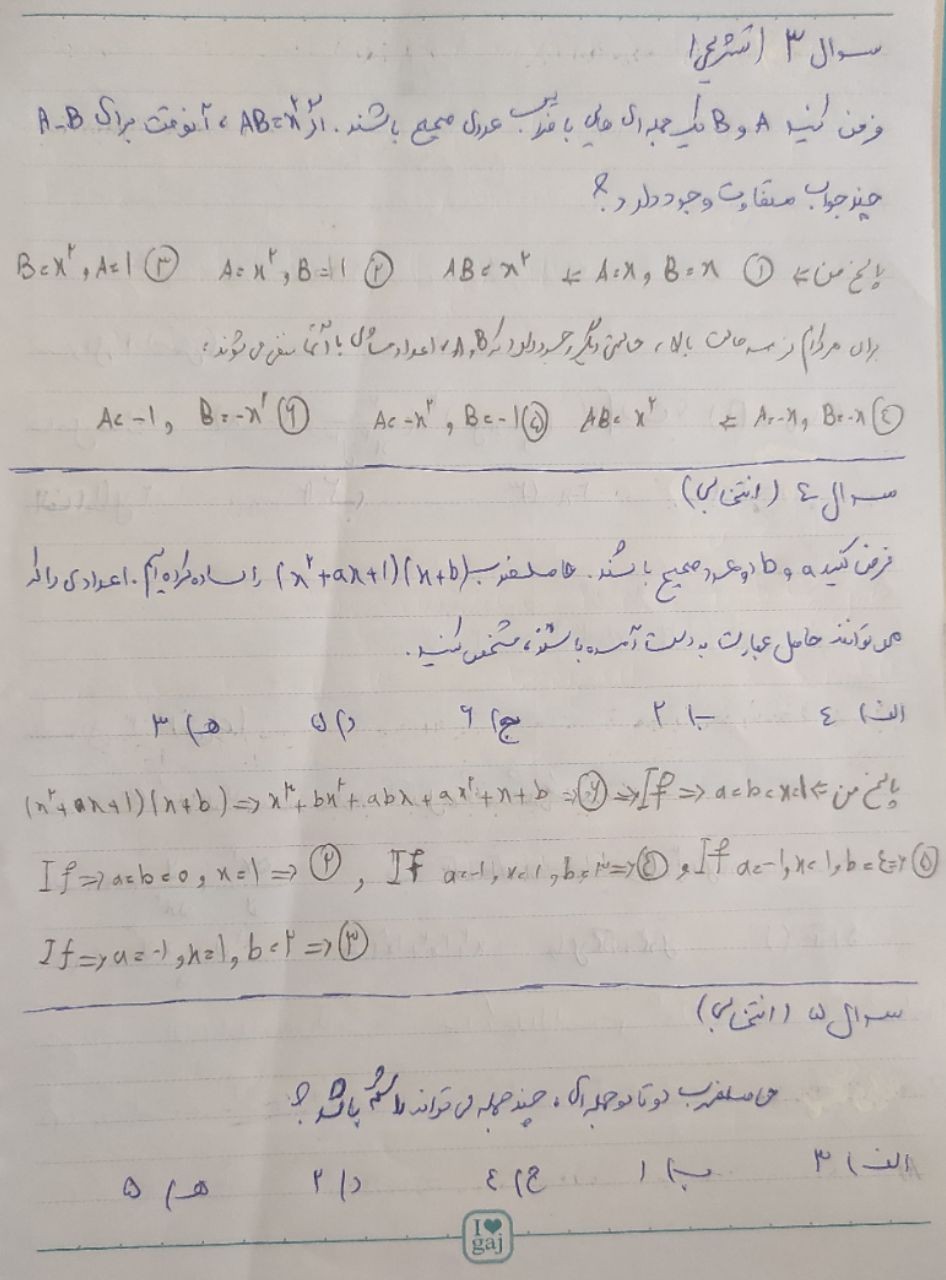 سوال ۳ (تشریحی)
فرض کنید A و B یک جمله ای هایی با ضرایب عددی صحیح باشند. اگر AB=x²، آنوقت برای A-B
چند جواب متفاوت وجود دارد؟
پاسخ من ⇐ ① A=x, B=x ⇐ AB=x² ② A=x², B=1 ③ B=x², A=1
برای هرکدام از سه حالت بالا، حالتی دیگر وجود دارد که A، B، اعداد مساوی با آنها منفی می شوند:
④ A=-x, B=-x ⇐ AB=x² ⑤ A=-x², B=-1 ⑥ A=-1, B=-x²
سوال ٤ (انتخابی)
فرض کنید a و b دو عدد صحیح باشند. حاصلضرب (x²+ax+1)(x+b) را ساده کرده ایم. اعدادی را که
می توانند حاصل عبارت به دست آمده باشند، مشخص کنید.
الف) ٤ ب) ۲ ج) ۶ د) ۵ هـ) ۳
پاسخ من ⇐ (x²+ax+1)(x+b) => x³+bx²+abx+ax²+x+b => ⑥ => If => a=b=x=1
If => a=b=0, x=1 => ②, If a=-1, x=1, b=۳ => ④, If a=-1, x=1, b=٤ => ⑤
If => a=-1, x=1, b=۲ => ③
سوال ۵ (انتخابی)
حاصلضرب دو تا دوجمله ای، چند جمله می تواند داشته باشد؟
الف) ۳ ب) ۱ ج) ٤ د) ۲ هـ) ۵
I♥
gaj